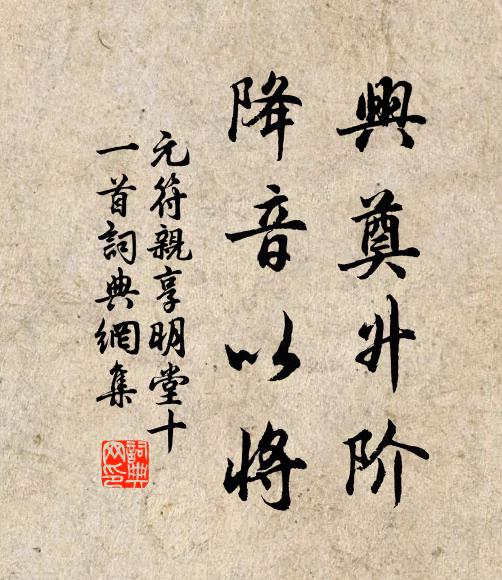 興奠升阶
降音以將
元符親享明堂十
一首詞典網集
詞典
网印